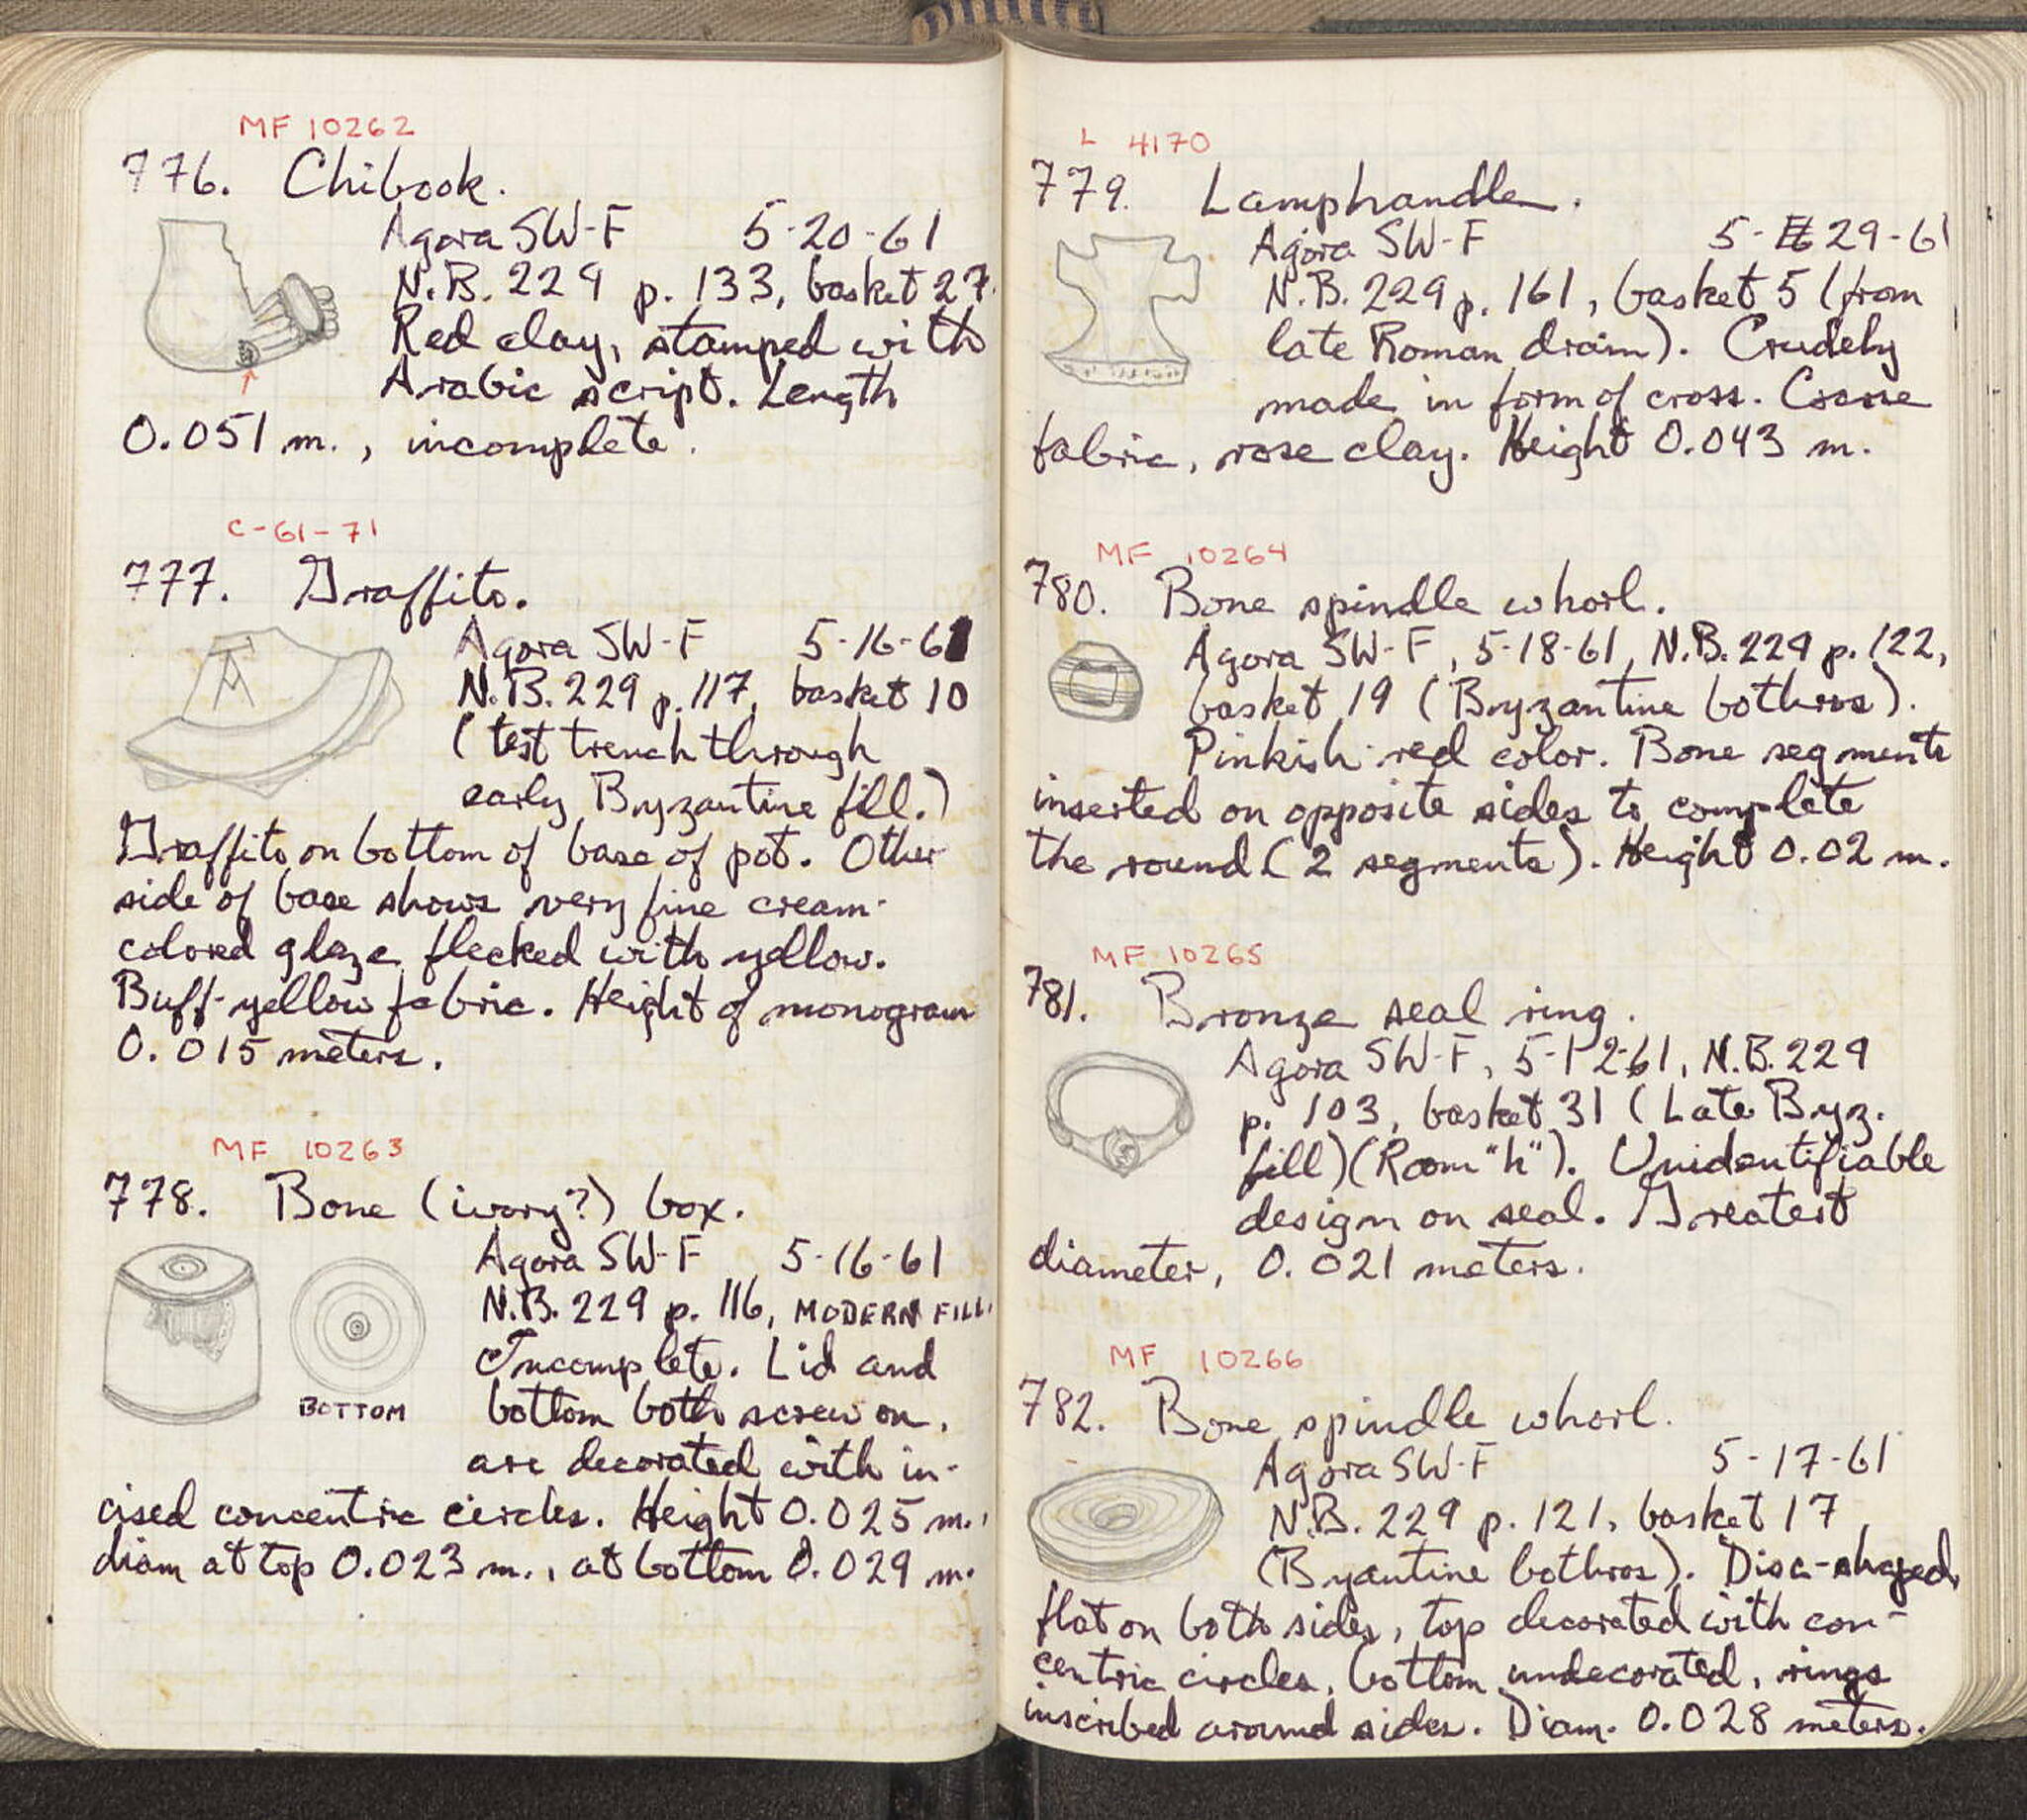 MF 10262
776. Chibook.
Agora SW-F 5-20-61
N.B. 229 p. 133, basket 27.
Red clay, stamped with
Arabic script. Length
0.051 m., incomplete.
C-61-71
777. Graffito.
Agora SW-F 5-16-61
N.B. 229 p. 117, basket 10
(test trench through
early Byzantine fill.)
Graffito on bottom of base of pot. Other
side of base shows very fine cream-
colored glaze flecked with yellow.
Buff-yellow fabric. Height of monogram
0.015 meters.
MF 10263
778. Bone (ivory?) box.
Agora SW-F 5-16-61
N.B. 229 p. 116, MODERN FILL.
Incomplete. Lid and
bottom both screw on,
BOTTOM
are decorated with in-
cised concentric circles. Height 0.025 m.,
diam at top 0.023 m., at bottom 0.029 m.
L 4170
779. Lamphandle.
Agora SW-F 5-29-61
N.B. 229 p. 161, basket 5 (from
late Roman drain). Crudely
made in form of cross. Coarse
fabric, rose clay. Height 0.043 m.
MF 10264
780. Bone spindle whorl.
Agora SW-F, 5-18-61, N.B. 229 p. 122,
basket 19 (Byzantine bothros).
Pinkish-red color. Bone segments
inserted on opposite sides to complete
the round (2 segments). Height 0.02 m.
MF 10265
781. Bronze seal ring.
Agora SW-F, 5-12-61, N.B. 229
p. 103, basket 31 (Late Byz.
fill) (Room "h"). Unidentifiable
design on seal. Greatest
diameter, 0.021 meters.
MF 10266
782. Bone spindle whorl.
Agora SW-F 5-17-61
N.B. 229 p. 121, basket 17
(Byantine bothros). Disc-shaped,
flat on both sides, top decorated with con-
centric circles, bottom undecorated, rings
inscribed around sides. Diam. 0.028 meters.